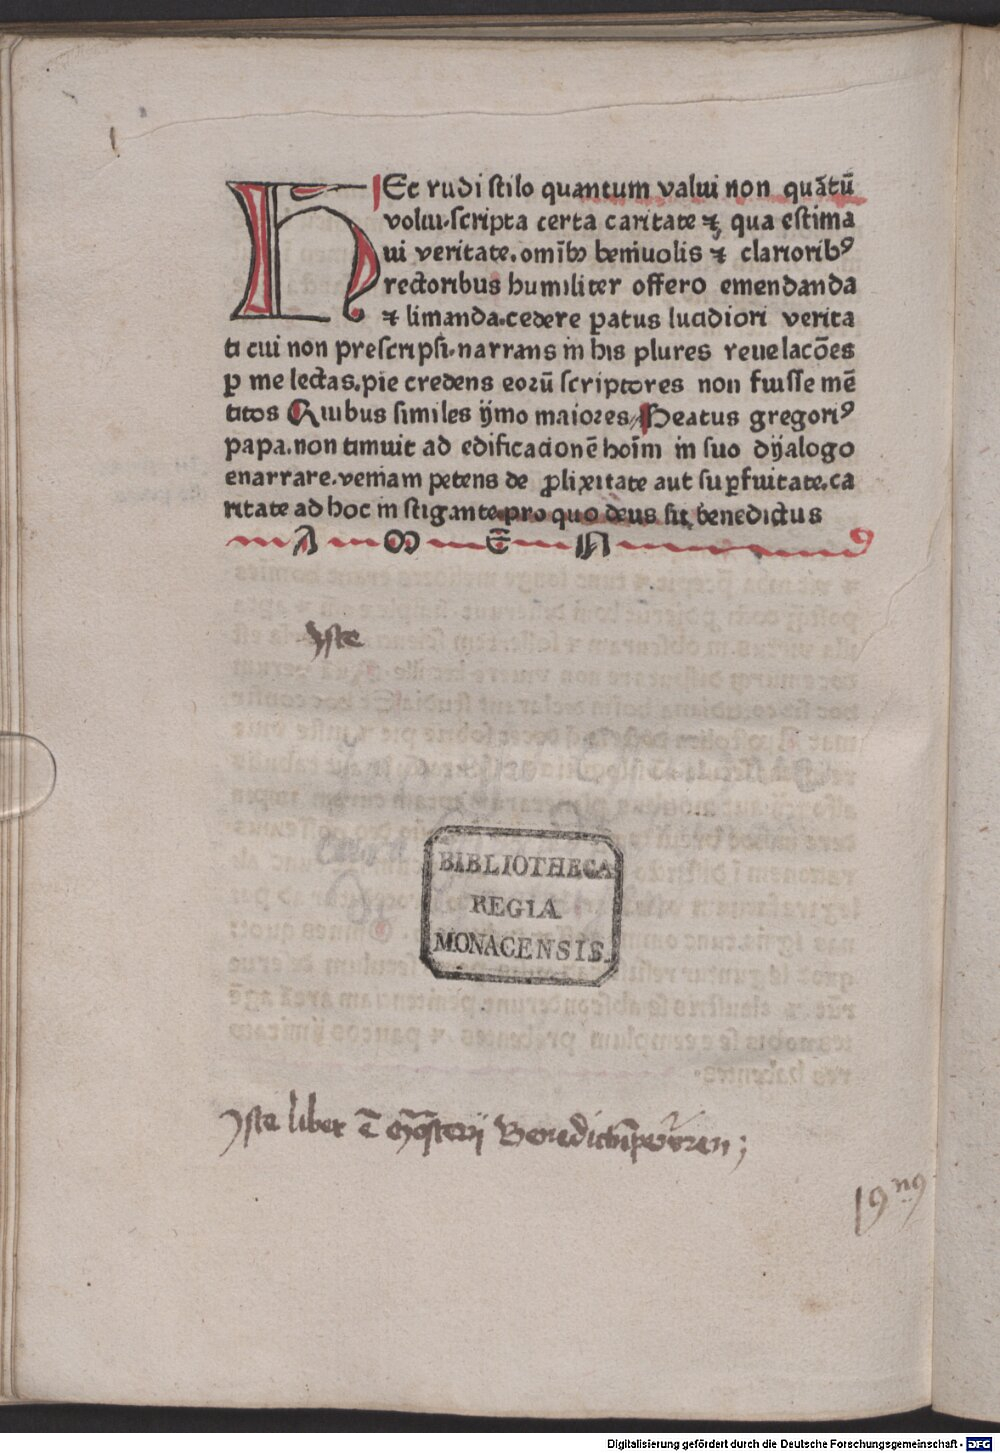 HEc rudi stilo quantum valui non quātū
volui.scripta certa caritate ⁊ qua estima
ui veritate.omībꝫ beniuolis ⁊ clarioribꝰ
rectoribus humiliter offero emendanda
⁊ limanda.cedere patus lucidiori verita
ti cui non prescripsi.narrans in his plures reuelacōes
ꝑ me lectas.pie credens eoꝛū scriptores non fuisse mē
titos Quibus similes ijmo maioꝛes Beatus gregoriꝰ
papa.non timuit ad edificacionē hoīm in suo dijalogo
enarrare.veniam petens de ꝓlixitate aut suꝑfluitate.ca
ritate ad hoc in stigante.pro quo deus sit benedictus
A M E N
Iste
BIBLIOTHECA
REGIA
MONACENSIS.
Iste liber ē Mōsterij Benedictinpewren;